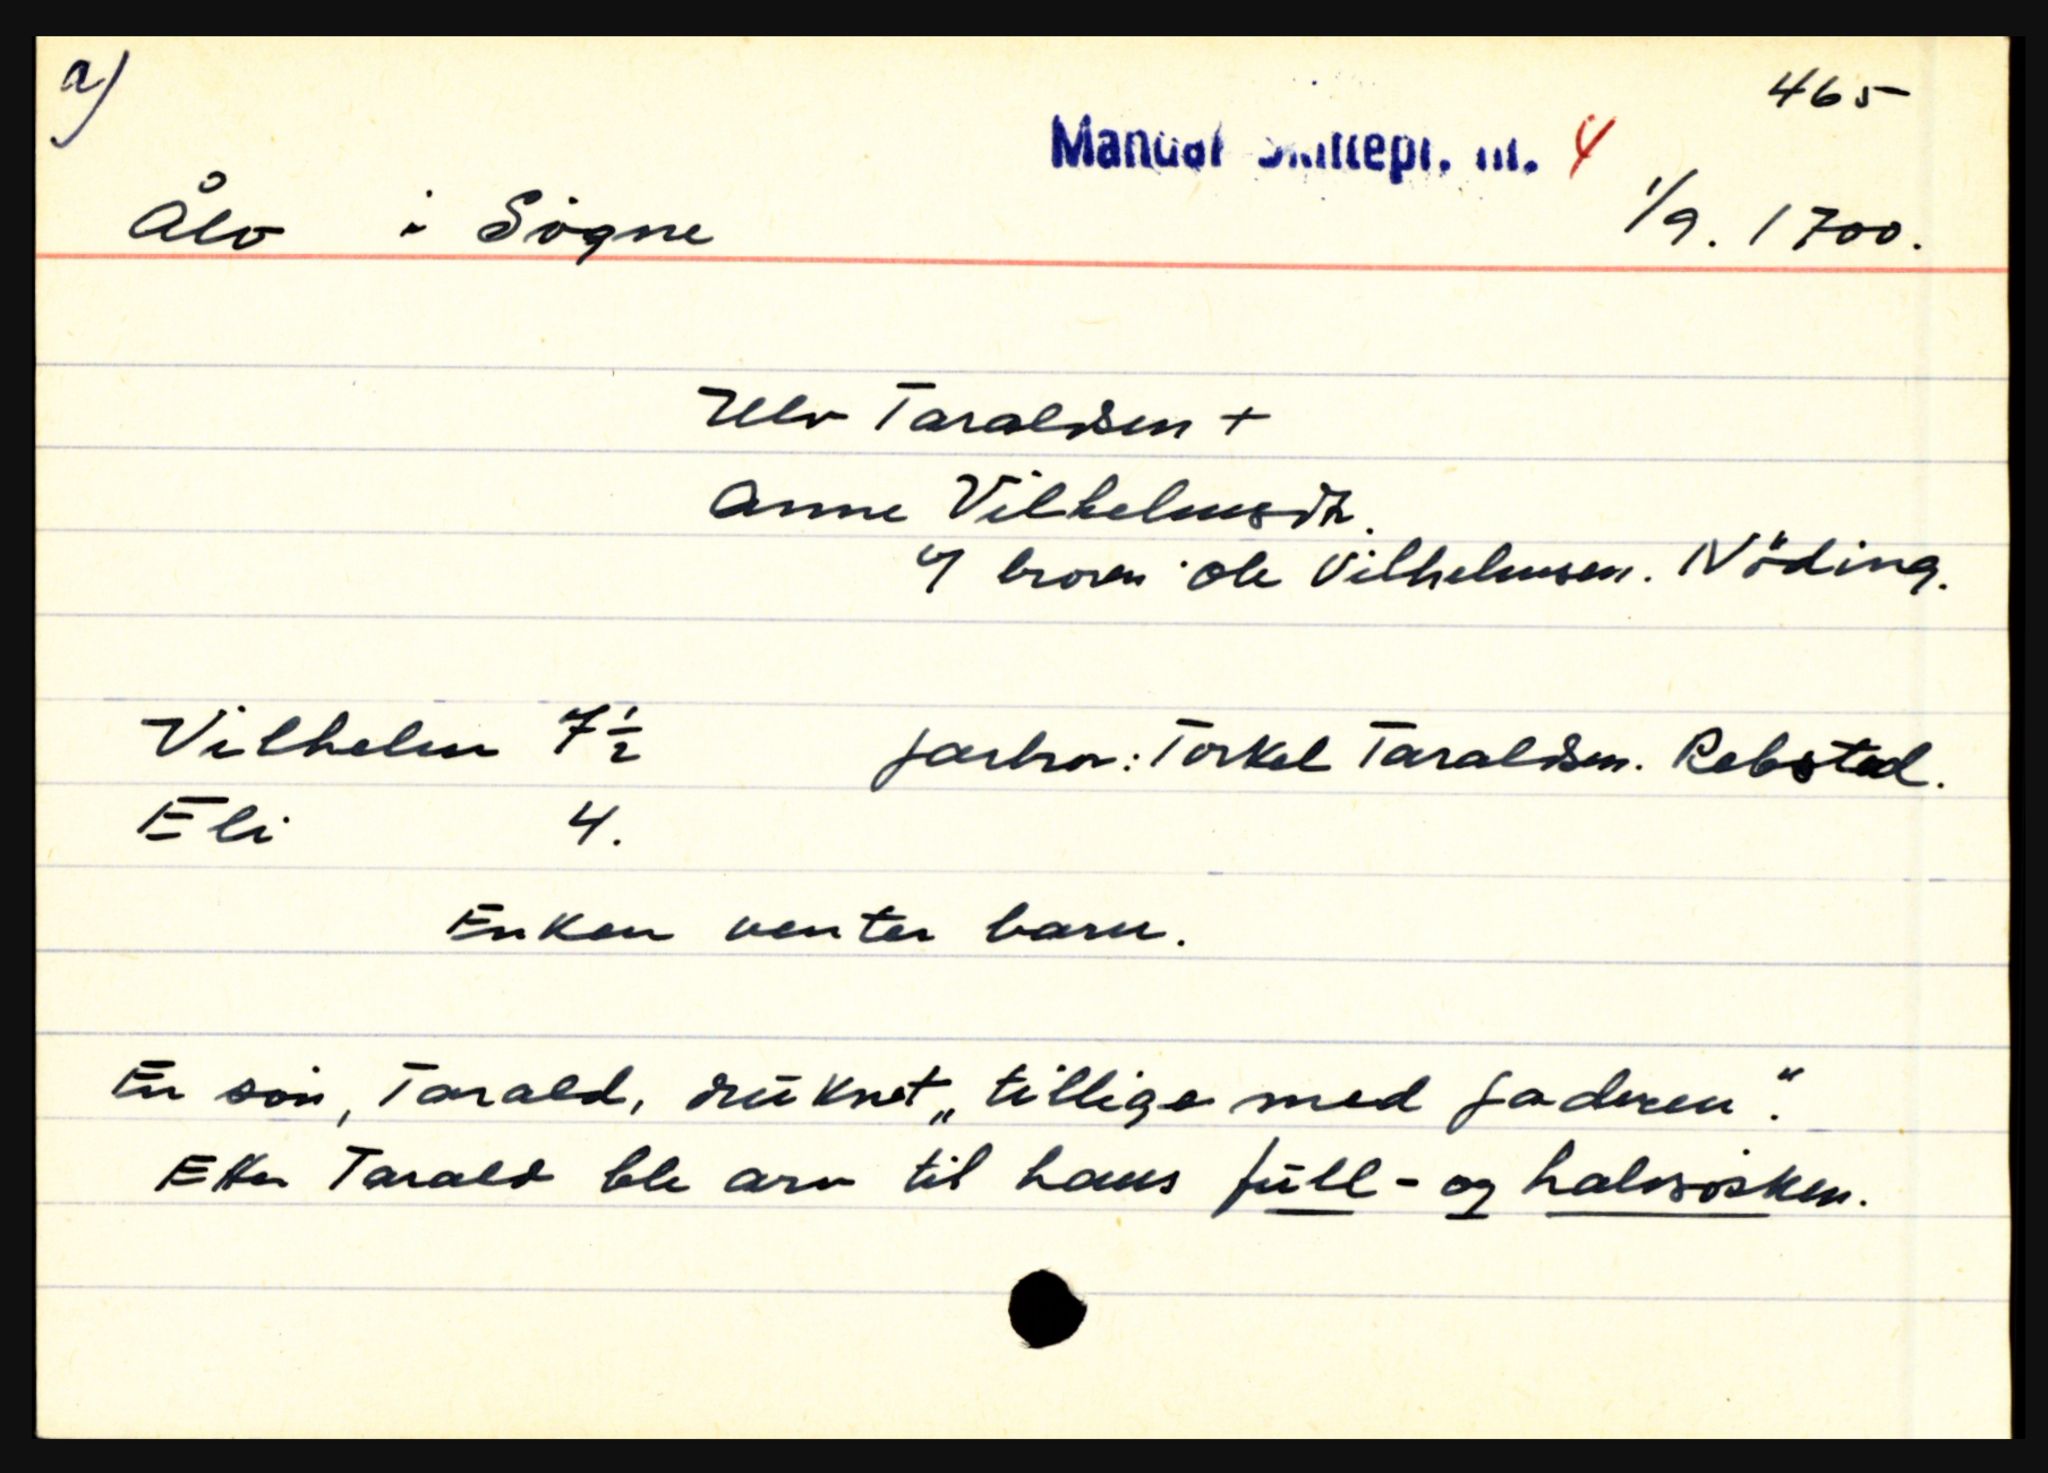 a)
465
Mandal Skiftepr. nr. 4
Ålo i Sögne 1/9. 1700.
Ulv Taraldsen +
Anne Vilhelmsdtr.
m/ broren Ole Vilhelmsen. Nöding.
Vilhelm 7½ farbror: Torkel Taraldsen. Rebstad.
Eli 4.
Enken venter barn.
En sön, Tarald, druknet „tillige med faderen".
Etter Tarald ble arv til hans full- og halvsösken.